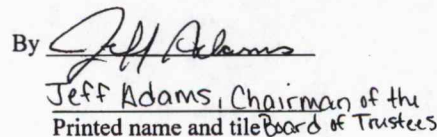 By Jeff Adams
Jeff Adams, Chairman of the
Printed name and tile Board of Trustees